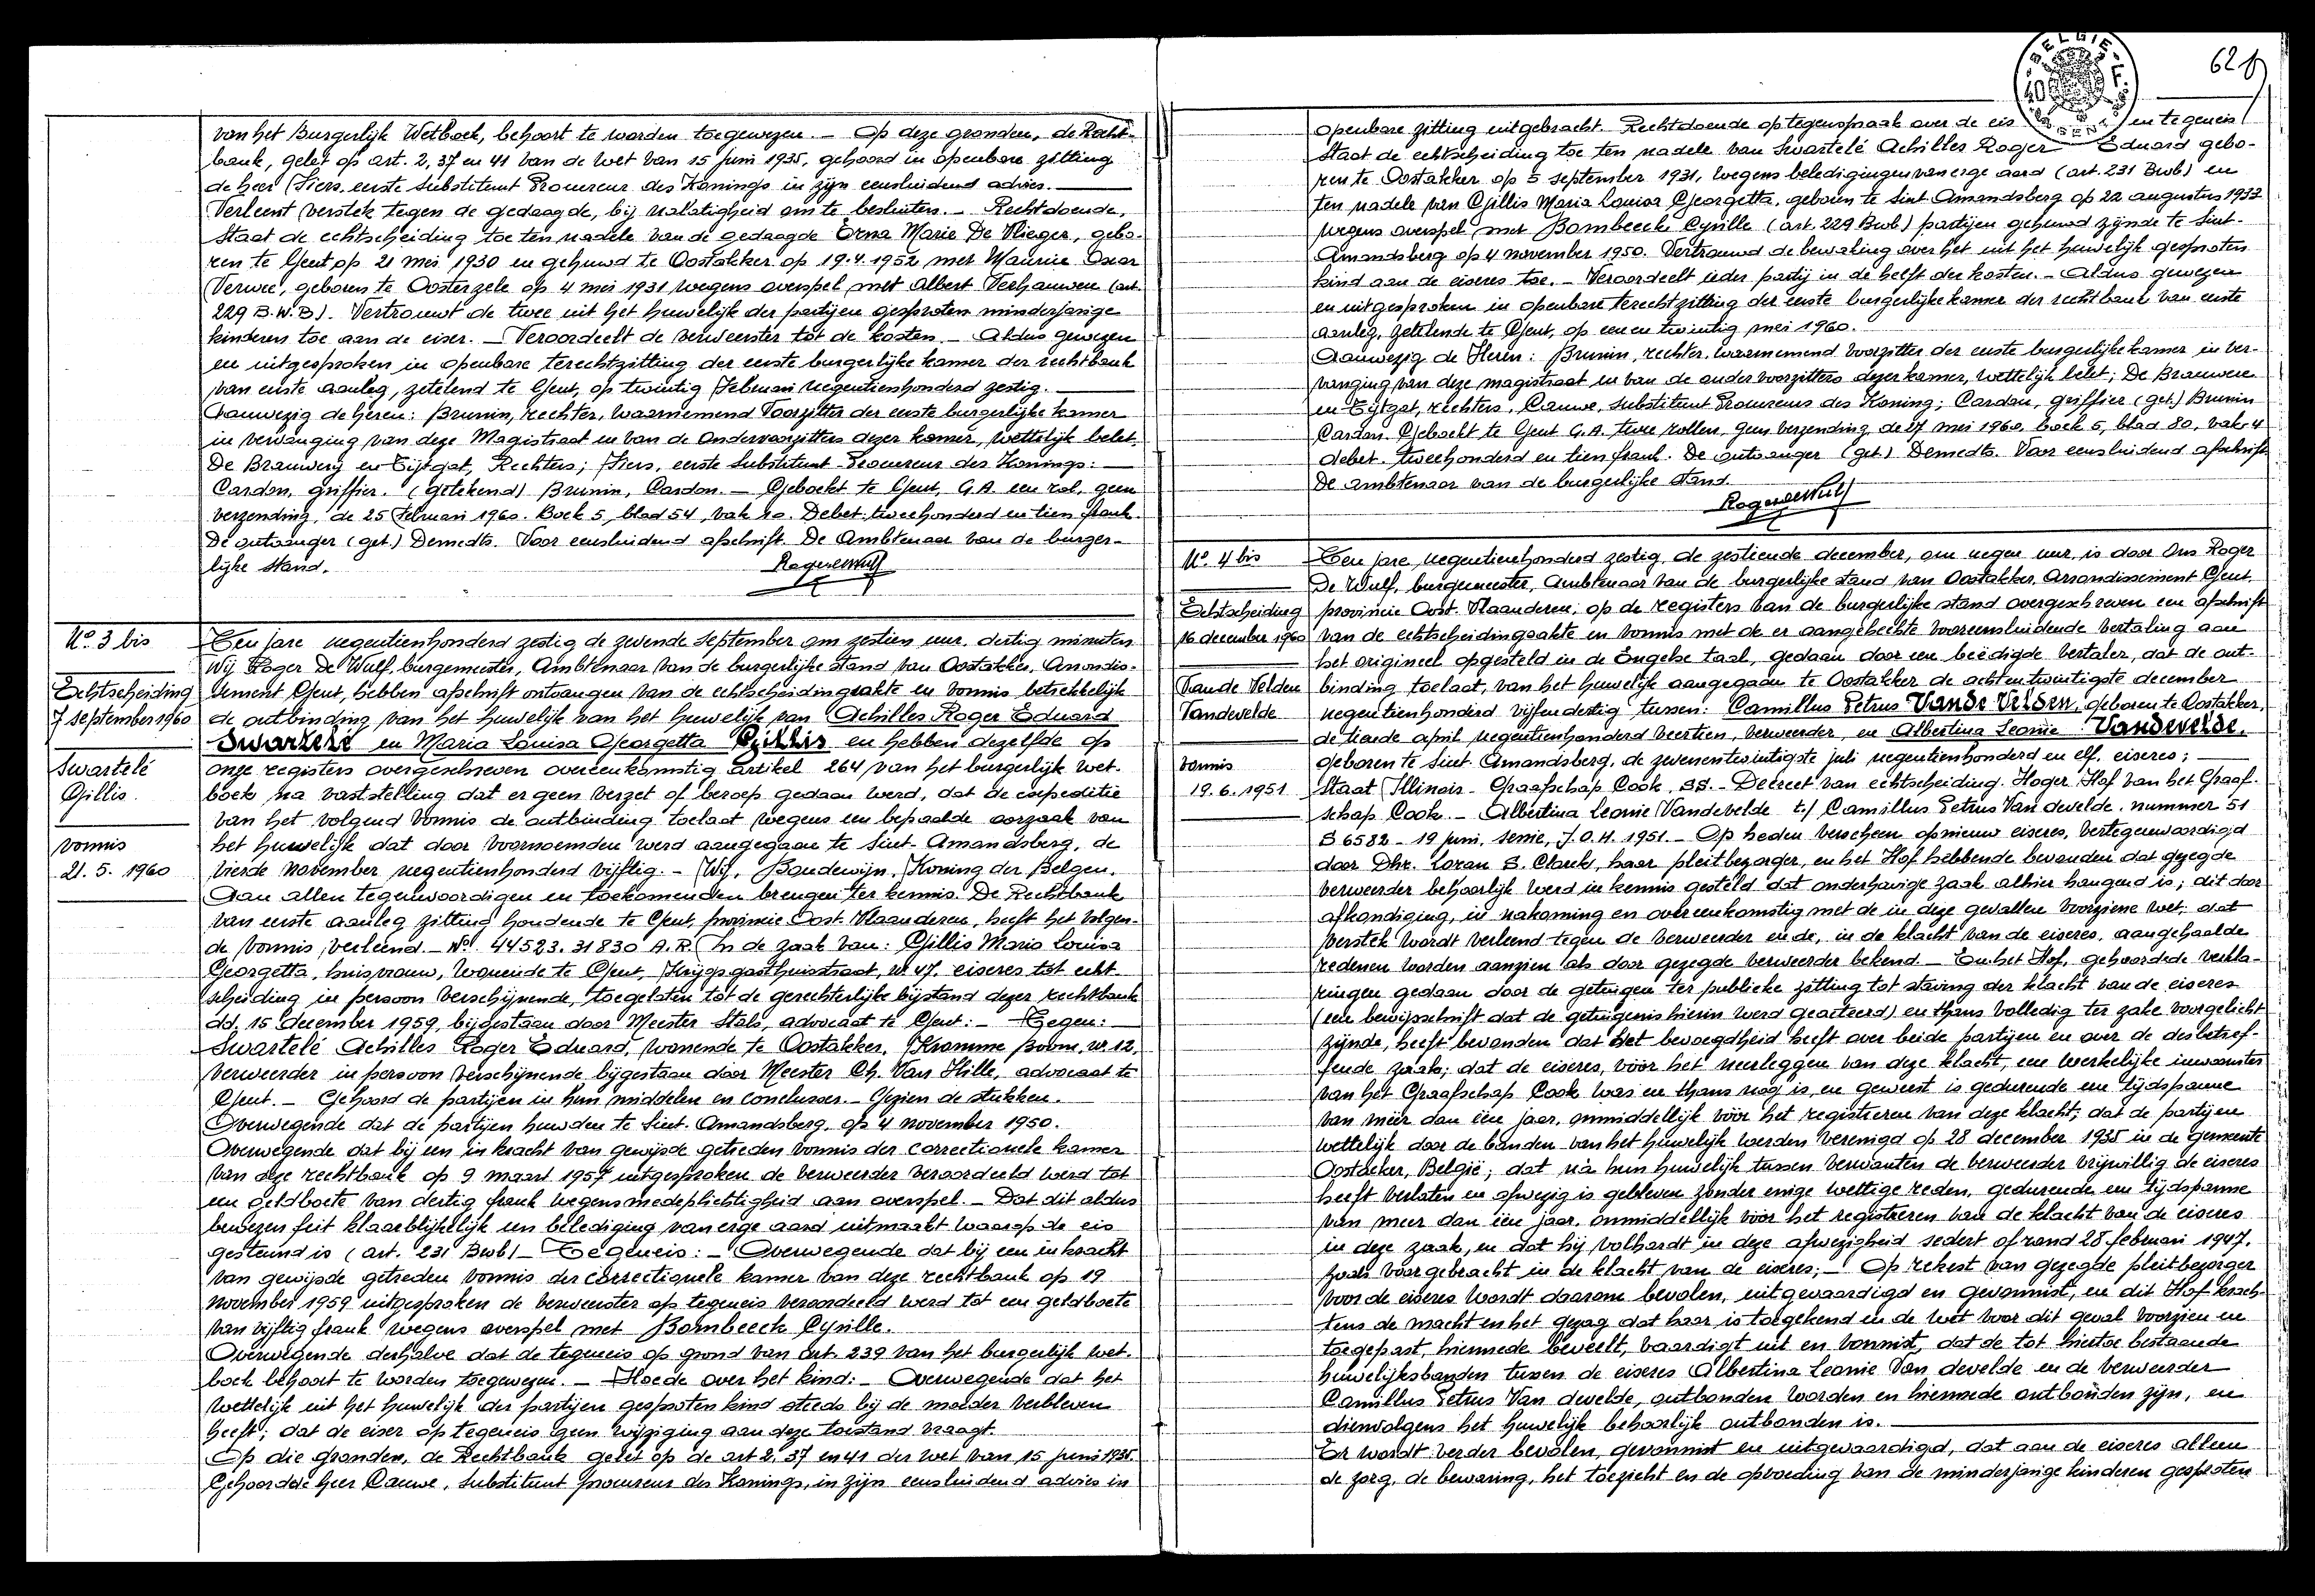 van het Burgerlijk Wetboek, behoort te worden toegewezen. — Op deze gronden, de Recht-
bank, gelet op art. 2, 37 en 41 van de wet van 15 juni 1935, gehoord in openbare zitting
de heer Fiers, eerste Substituut Procureur des Konings in zijn eensluidend advies.
Verleent verstek tegen de gedaagde, bij nalatigheid om te besluiten. — Rechtdoende,
Staat de echtscheiding toe ten nadele van de gedaagde Erna Marie De Vlieger, gebo-
ren te Gent op 21 mei 1930 en gehuwd te Oostakker op 19.4.1952 met Maurice Oscar
Verwee, geboren te Oosterzele op 4 mei 1931 wegens overspel met Albert Verhauwen (art.
229 B.W.B). Vertrouwt de twee uit het huwelijk der partijen gesproten minderjarige
kinderen toe aan de eiser. — Veroordeelt de verweerster tot de kosten. — Aldus gewezen
en uitgesproken in openbare terechtzitting der eerste burgerlijke kamer der rechtbank
van eerste aanleg, zetelend te Gent, op twintig februari negentienhonderd zestig.
Aanwezig de heren: Brunin, rechter, waarnemend Voorzitter der eerste burgerlijke kamer
in vervanging van deze Magistraat en van de ondervoorzitters dezer kamer, wettelijk belet.
De Brauwerij en Eijtgat, Rechters; Fiers, eerste Substituut-Procureur des Konings:
Cardon, griffier. (getekend) Brunin, Cardon. — Geboekt te Gent, G.A. een rol, geen
verzending, de 25 februari 1960. Boek 5, blad 54, vak 10. Debet tweehonderd en tien frank.
De ontvanger (get.) Demedts. Voor eensluidend afschrift. De Ambtenaar van de burger-
lijke stand.
Rogerdewulf
No. 3 bis
Echtscheiding
7 september 1960
Swartelé
Gillis.
vonnis
21. 5. 1960
Ten jare negentienhonderd zestig de zevende september om zestien uur, dertig minuten
Wij Roger De Wulf, burgemeester, Ambtenaar van de burgerlijke stand van Oostakker, Arrondis-
sement Gent, hebben afschrift ontvangen van de echtscheidingsakte en vonnis betrekkelijk
de ontbinding van het huwelijk van het huwelijk van Achilles Roger Eduard
Swartelé en Maria Louisa Georgetta Gillis en hebben dezelfde op
onze registers overgeschreven overeenkomstig artikel 264 van het burgerlijk wet-
boek na vaststelling dat er geen verzet of beroep gedaan werd, dat de expeditie
van het volgend vonnis de ontbinding toelaat wegens een bepaalde oorzaak van
het huwelijk dat door voornoemden werd aangegaan te Sint-Amandsberg, de
vierde november negentienhonderd vijftig. — Wij, Boudewijn, Koning der Belgen.
Aan allen tegenwoordigen en toekomenden brengen ter kennis. De Rechtbank
van eerste aanleg zitting houdende te Gent, provincie Oost-Vlaanderen, heeft het volgen-
de vonnis, verleend. — No. 44523.31830 A.R. In de zaak van: Gillis Maria Louisa
Georgetta, huisvrouw, wonende te Gent, Krijgsgasthuisstraat, nr 47. eiseres tot echt
scheiding in persoon verschijnende, toegelaten tot de gerechterlijke bijstand dezer rechtbank
dd. 15 december 1959, bijgestaan door Meester Stals, advocaat te Gent: — Tegen:
Swartelé Achilles Roger Eduard, wonende te Oostakker, Kromme boom, nr. 12,
verweerder in persoon verschijnende bijgestaan door Meester Ch. Van Hille, advocaat te
Gent. — Gehoord de partijen in hun middelen en conclusies. — Gezien de stukken.
Overwegende dat de partijen huwden te Sint-Amandsberg, op 4 november 1950.
Overwegende dat bij een in kracht van gewijsde getreden vonnis der correctionele kamer
van deze rechtbank op 9 maart 1957 uitgesproken de verweerder veroordeeld werd tot
een geldboete van dertig frank wegens medeplichtigheid aan overspel. — Dat dit aldus
bewezen feit klaarblijkelijk een belediging van erge aard uitmaakt waarop de eis
gesteund is (art. 231 Bwb) — Tegeneis: — Overwegende dat bij een in kracht
van gewijsde getreden vonnis der correctionele kamer van deze rechtbank op 19
november 1959 uitgesproken de verweerster op tegeneis veroordeeld werd tot een geldboete
van vijftig frank wegens overspel met Bombeeck Cyrille.
Overwegende derhalve dat de tegeneis op grond van art. 239 van het burgerlijk wet-
boek behoort te worden toegewezen. — Hoede over het kind: — Overwegende dat het
wettelijk uit het huwelijk der partijen gesproten kind steeds bij de moeder verbleven
heeft; dat de eiser op tegeneis geen wijziging aan deze toestand vraagt.
Op die gronden, de Rechtbank gelet op de art 2, 37 en 41 der wet van 15 juni 1935.
Gehoord de heer Cauwe, Substituut procureur des Konings, in zijn eensluidend advies in
62
BELGIE
openbare zitting uitgebracht. Rechtdoende op tegenspraak over de eis en tegeneis
Staat de echtscheiding toe ten nadele van Swartelé Achilles Roger Eduard gebo-
ren te Oostakker op 5 september 1931, wegens beledigingen van erge aard (art. 231 Bwb) en
ten nadele van Gillis Maria Louisa Georgetta, geboren te Sint Amandsberg op 22 augustus 1933
wegens overspel met Bombeeck Cyrille (art. 229 Bwb) partijen gehuwd zijnde te Sint-
Amandsberg op 4 november 1950. Vertrouwd de bewaking over het uit het huwelijk gesproten
kind aan de eiseres toe. — Veroordeelt ieder partij in de helft der kosten. — Aldus gewezen
en uitgesproken in openbare terechtzitting der eerste burgerlijke kamer der rechtbank van eerste
aanleg, zetelende te Gent, op een en twintig mei 1960.
Aanwezig de Heren: Brunin, rechter, waarnemend voorzitter der eerste burgerlijke kamer in ver-
vanging van deze magistraat en van de onder voorzitters dezer kamer, wettelijk belet; De Brauwere
en Eijtgat, rechters, Cauwe, Substituut Procureur des Koning; Cardon, griffier (get.) Brunin
Cardon. Geboekt te Gent G.A. twee rollen, geen verzending, de 27 mei 1960, boek 5, blad 80, vak 4
debet. tweehonderd en tien frank. De ontvanger (get.) Demedts. Voor eensluidend afschrift
De ambtenaar van de burgerlijke stand.
Rogerdewulf
No. 4 bis
Echtscheiding
16 december 1960
Van de Velden
Vandevelde
vonnis
19.6.1951
Ten jare negentienhonderd zestig, de zestiende december, om negen uur, is door Ons Roger
De Wulf, burgemeester, Ambtenaar van de burgerlijke stand van Oostakker, Arrondissement Gent,
provincie Oost-Vlaanderen, op de registers van de burgerlijke stand overgeschreven een afschrift
van de echtscheidingsakte en vonnis met de er aangehechte vooreensluidende vertaling aan
het origineel opgesteld in de Engelse taal, gedaan door een beëdigde vertaler, dat de ont-
binding toelaat, van het huwelijk aangegaan te Oostakker de achtentwintigste december
negentienhonderd vijfendertig tussen: Camillus Petrus Van de Velden, geboren te Oostakker,
de tiende april negentienhonderd veertien, verweerder, en Albertina Leonie Vandevelde,
geboren te Sint-Amandsberg, de zevenentwintigste juli negentienhonderd en elf, eiseres;
Staat Illinois - Graafschap Cook, SS. - Decreet van echtscheiding. Hoger Hof van het Graaf-
schap Cook. — Albertina Leonie Vandevelde t./ Camillus Petrus Van develde. nummer 51
S 6582 - 19 juni, semie, J.O.H. 1951. — Op heden verscheen opnieuw eiseres, vertegenwoordigd
door Dhr. Loran S. Clark, haar pleitbezorger, en het Hof hebbende bevonden dat gezegde
verweerder behoorlijk werd in kennis gesteld dat onderhavige zaak alhier hangend is; dit door
afkondiging, in nakoming en overeenkomstig met de in deze gevallen voorziene wet; dat
verstek wordt verleend tegen de verweerder en de, in de klacht van de eiseres, aangehaalde
redenen worden aanzien als door gezegde verweerder bekend. — En het Hof, gehoord de verkla-
ringen gedaan door de getuigen ter publieke zitting tot staving der klacht van de eiseres
(een bewijsschrift dat de getuigenis hierin werd geacteerd) en thans volledig ter zake voorgelicht
zijnde, heeft bevonden dat het bevoegdheid heeft over beide partijen en over de desbetref-
fende zaak; dat de eiseres, vóór het neerleggen van deze klacht, een werkelijke inwoonster
van het Graafschap Cook was en thans nog is, en geweest is gedurende een tijdspanne
van méér dan één jaar, onmiddellijk vóór het registreren van deze klacht; dat de partijen
wettelijk door de banden van het huwelijk werden verenigd op 28 december 1935 in de gemeente
Oostacker, België; dat na hun huwelijk tussen verwanten de verweerder vrijwillig de eiseres
heeft verlaten en afwezig is gebleven zonder enige wettige reden, gedurende een tijdspanne
van meer dan één jaar, onmiddellijk vóór het registreren van de klacht van de eiseres
in deze zaak, en dat hij volhardt in deze afwezigheid sedert of rond 28 februari 1947,
zoals voorgebracht in de klacht van de eiseres; — Op rekest van gezegde pleitbezorger
voor de eiseres wordt daarom bevolen, uitgevaardigd en gevonnist, en dit Hof krach-
tens de macht en het gezag dat haar is toegekend en de wet voor dit geval voorzien en
toegepast, hiermede beveelt, vaardigt uit en vonnist, dat de tot hiertoe bestaande
huwelijksbanden tussen de eiseres Albertina Leonie Van develde en de verweerder
Camillus Petrus Van develde, ontbonden worden en hiermede ontbonden zijn, en
dienvolgens het huwelijk behoorlijk ontbonden is.
Er wordt verder bevolen, gevonnist en uitgevaardigd, dat aan de eiseres alleen
de zorg, de bewaring, het toezicht en de opvoeding van de minderjarige kinderen gesproten